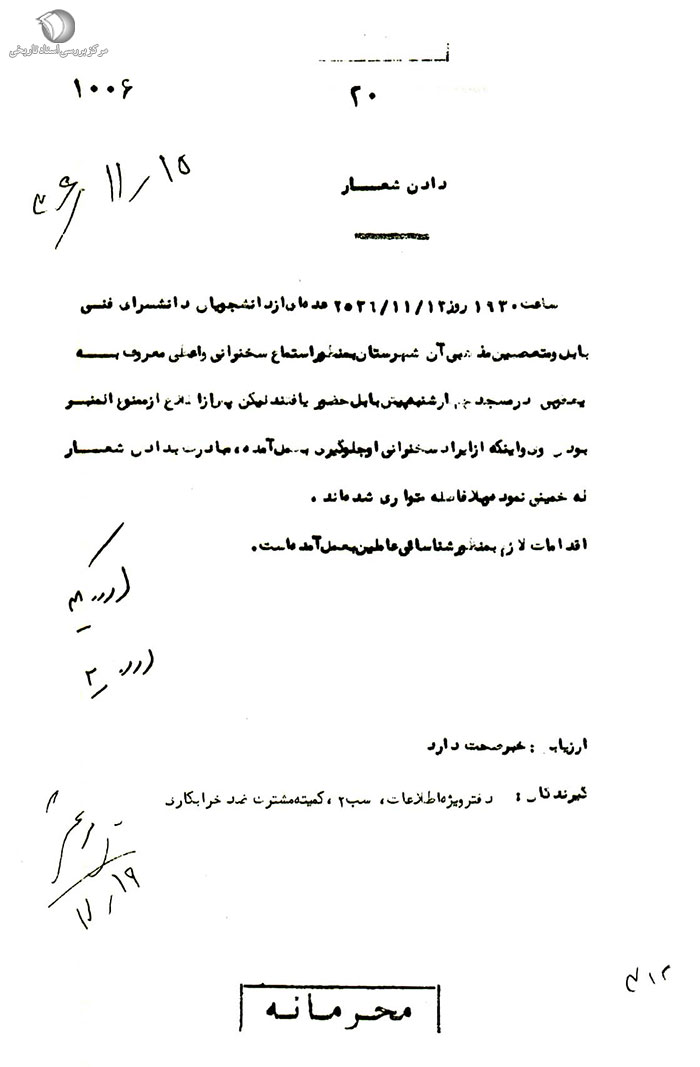 مرکز بررسی اسناد تاریخی
۱۰۰۶
۲۰
۱۱/۱۵
دادن شعار
ساعت ۱۹۳۰ روز ۲۵۳۶/۱۱/۱۲ عده‌ای از دانشجویان دانشسرای فنی
بابل و متعصبین مذهبی آن شهرستان بمنظور استماع سخنرانی واعظی معروف به
در مسجد بابل حضور یافتند لیکن پس از از ممنوع المنبر
بودن وی و اینکه از ایراد سخنرانی او جلوگیری بعمل آمده، مبادرت بدادن شعار
خمینی نموده بلافاصله متواری شده‌اند.
اقدامات لازم بمنظور شناسائی عاملین بعمل آمده است.
ارزیابی: خبر صحت دارد
گیرندگان: دفتر ویژه اطلاعات، کمیته مشترک ضد خرابکاری
۱۹
محرمانه
۳۱۲